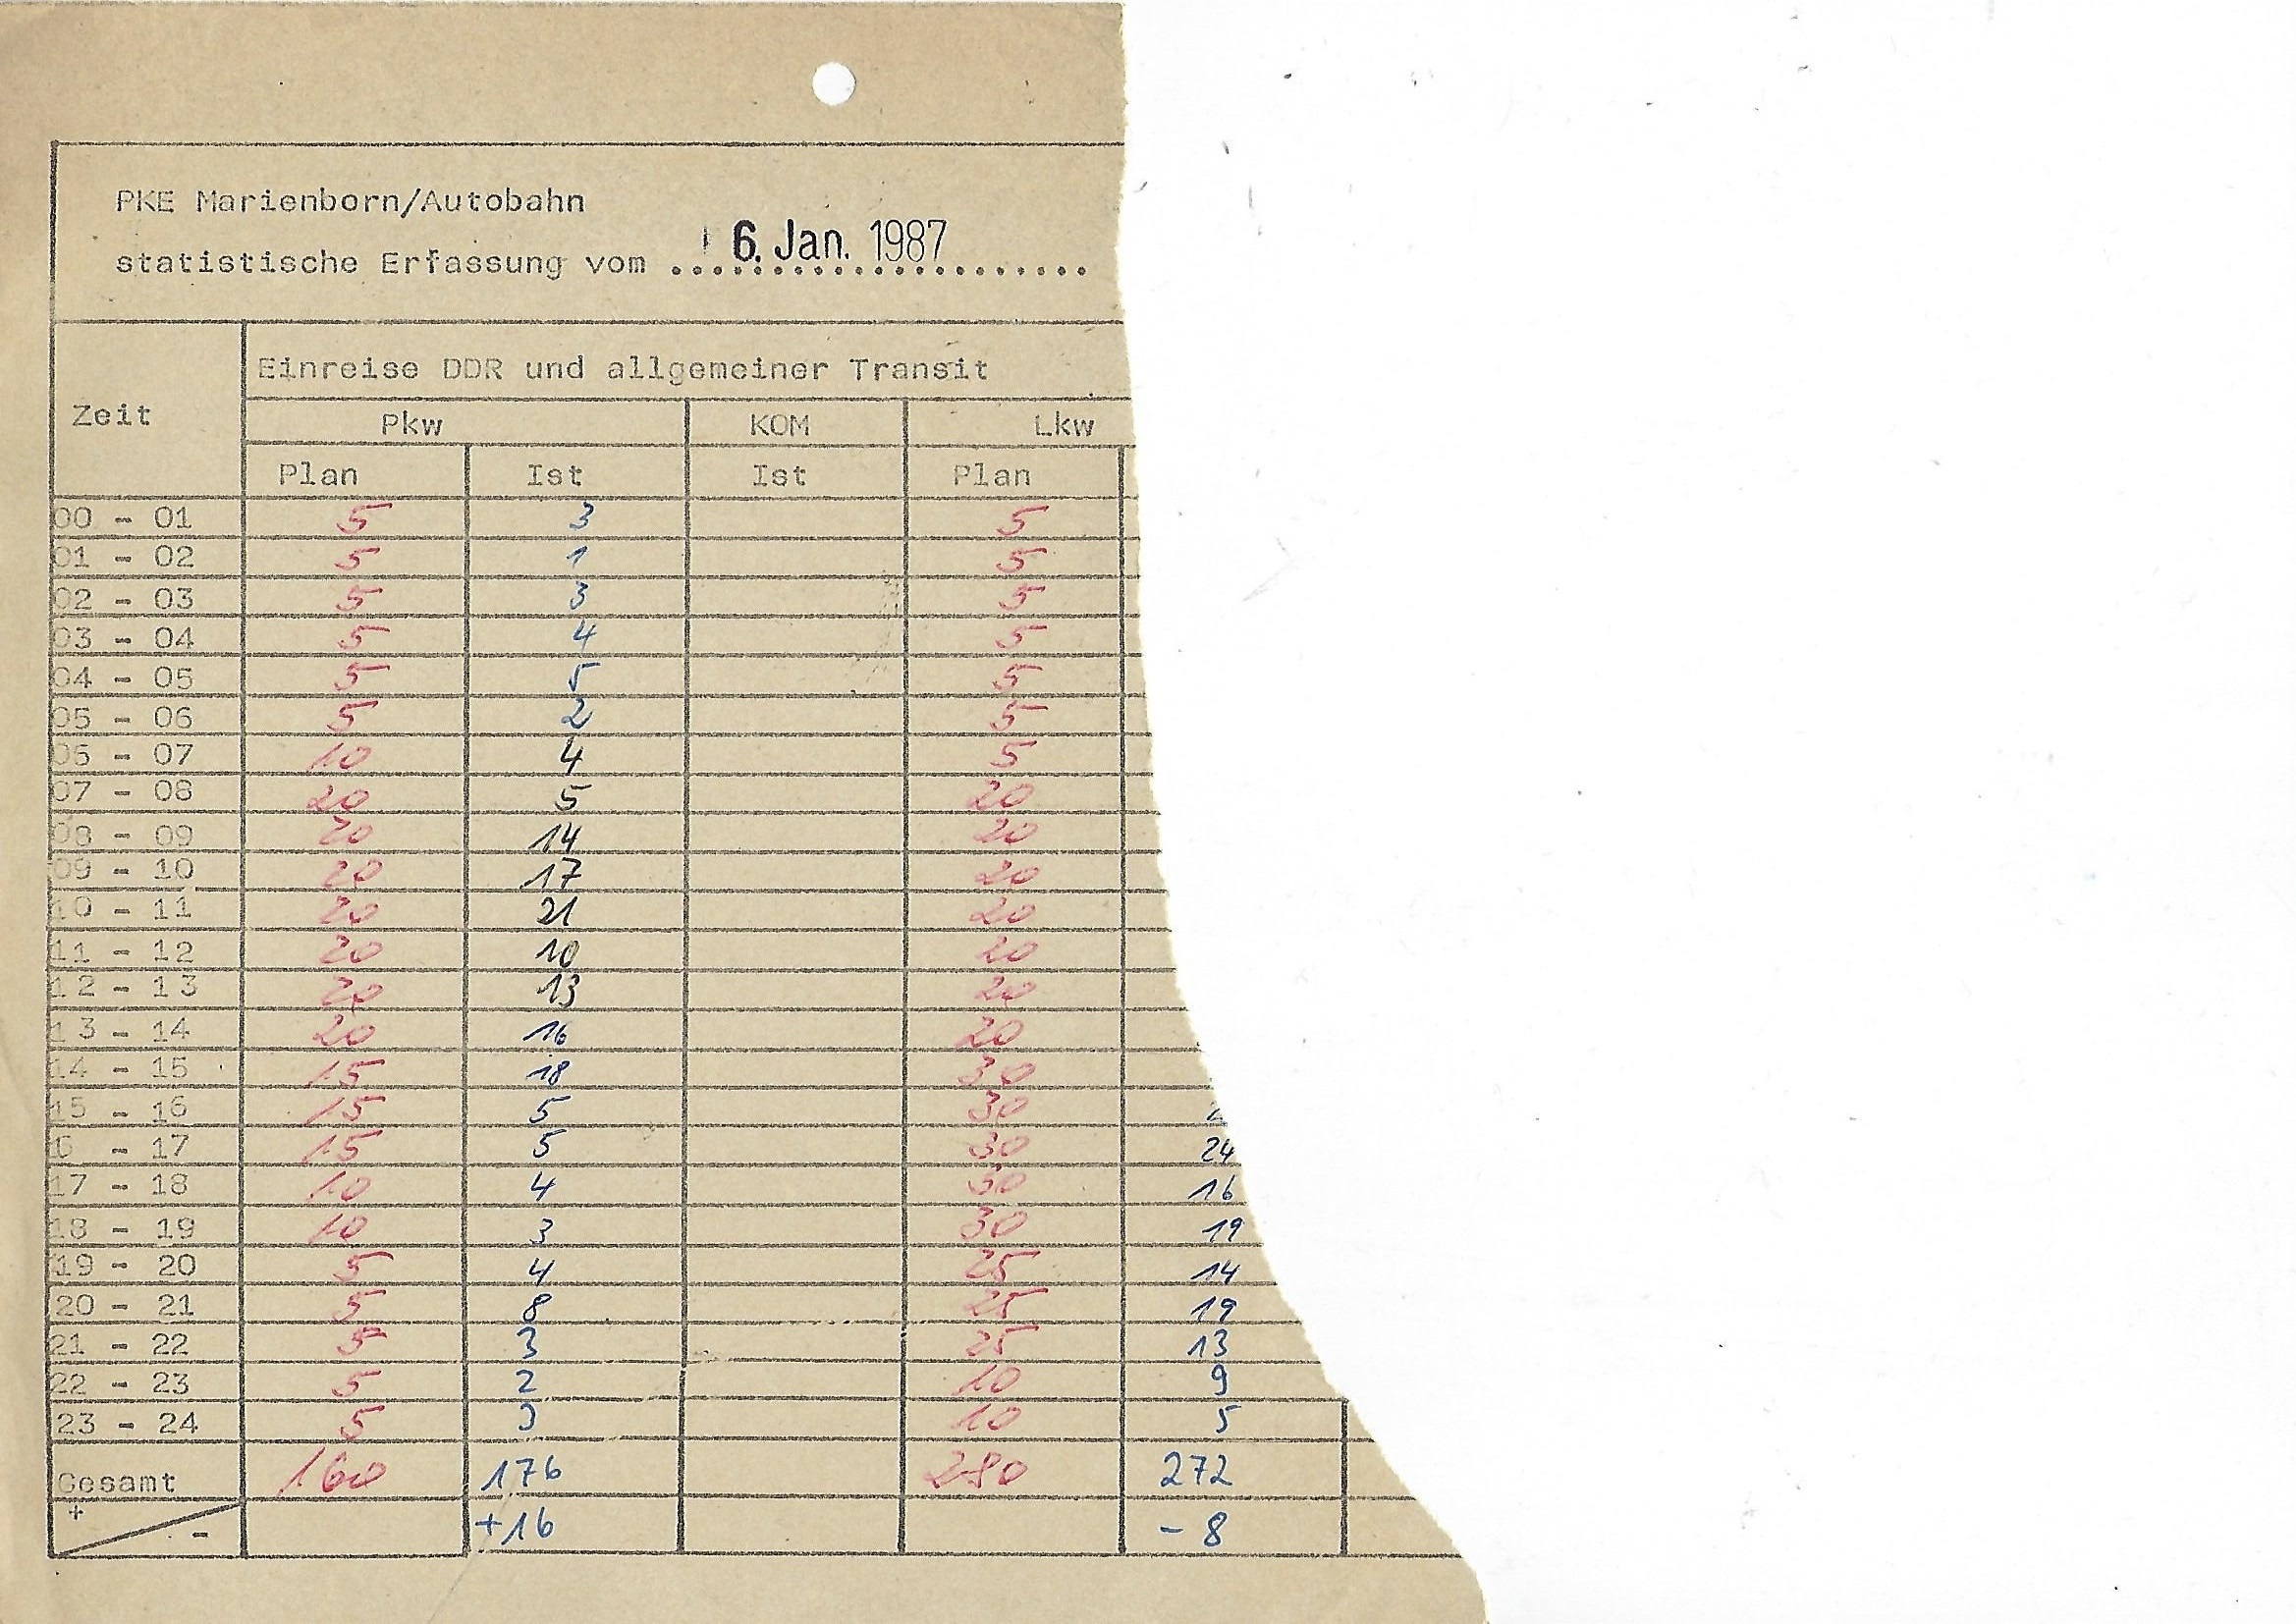 PKE Marienborn/Autobahn
statistische Erfassung vom 6. Jan. 1987
Einreise DDR und allgemeiner Transit
Zeit
Pkw KOM Lkw
Plan Ist Ist Plan
00 - 01 5 3 5
01 - 02 5 1 5
02 - 03 5 3 5
03 - 04 5 4 5
04 - 05 5 5 5
05 - 06 5 2 5
06 - 07 10 4 5
07 - 08 20 5 20
08 - 09 20 14 20
09 - 10 20 17 20
10 - 11 20 21 20
11 - 12 20 10 20
12 - 13 20 13 20
13 - 14 20 16 20
14 - 15 15 18 30
15 - 16 15 5 30
6 - 17 15 5 30 24
17 - 18 10 4 30 16
18 - 19 10 3 30 19
19 - 20 5 4 25 14
20 - 21 5 8 25 19
21 - 22 5 3 25 13
22 - 23 5 2 10 9
23 - 24 5 3 10 5
Gesamt 160 176 280 272
+ - +16 - 8